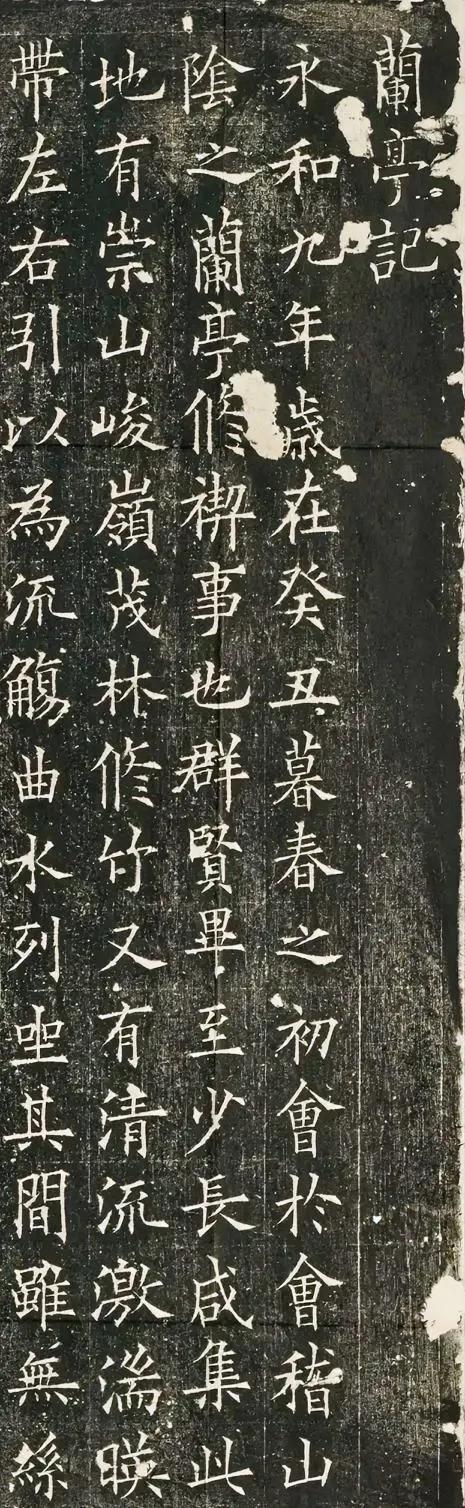 蘭亭記
永和九年歲在癸丑暮春之初會於會稽山
陰之蘭亭脩禊事也群賢畢至少長咸集此
地有崇山峻嶺茂林脩竹又有清流激湍暎
帶左右引以為流觴曲水列坐其間雖無絲